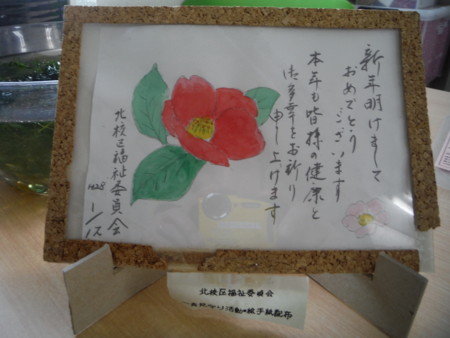 新年明けまして
おめでとう
ございます
本年も皆様の健康と
御多幸をお祈り
申し上げます
北校区福祉委員会
H28 1/12
北校区福祉委員会
活動・絵手紙配布